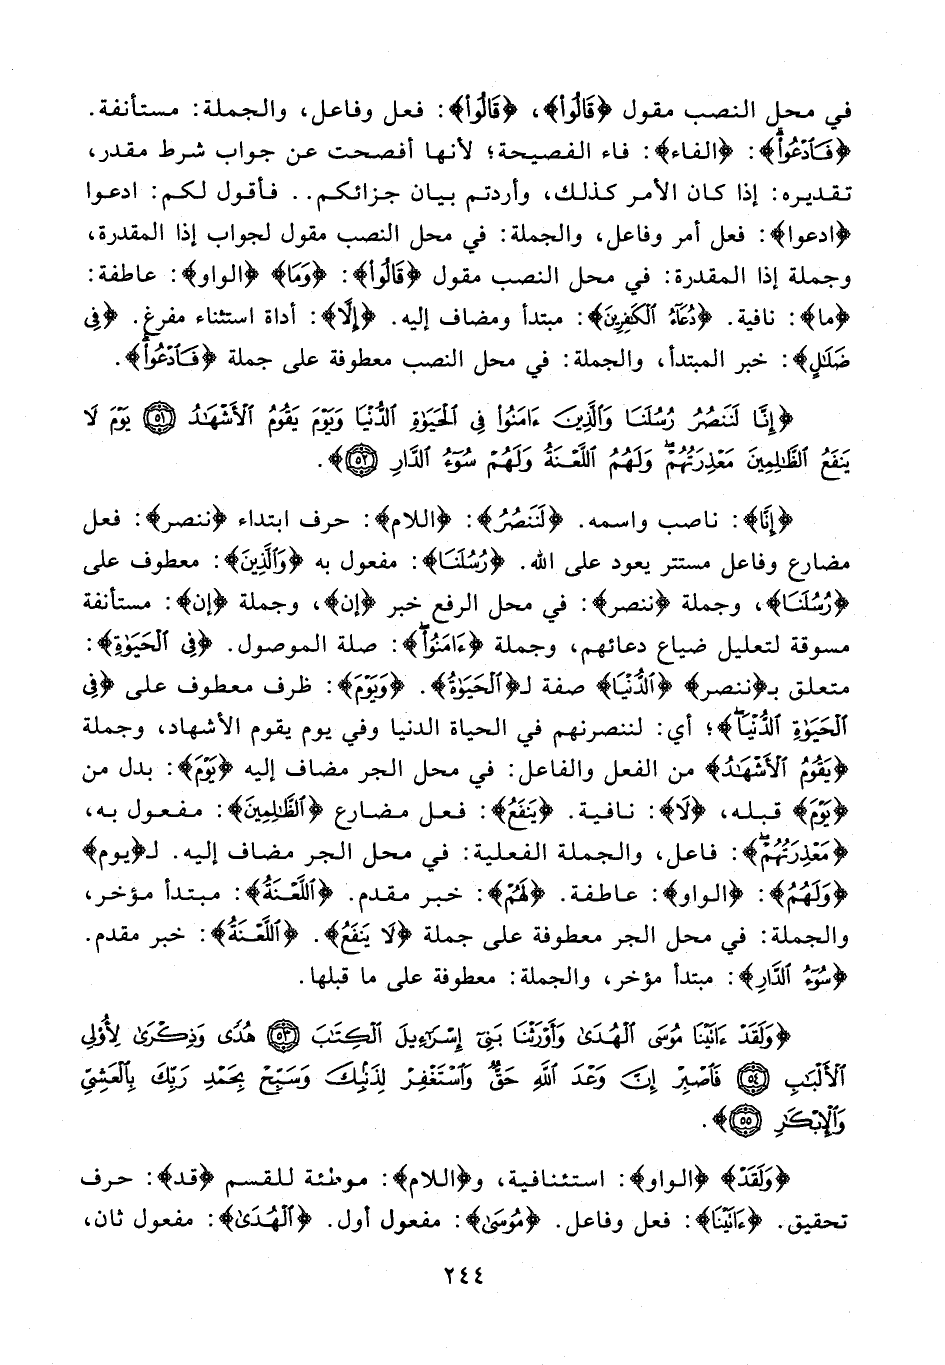 في محل النصب مقول ﴿قَالُوا۟﴾، ﴿قَالُوا۟﴾: فعل وفاعل، والجملة: مستأنفة.
﴿فَٱدْعُوا۟﴾: ﴿الفاء﴾: فاء الفصيحة؛ لأنها أفصحت عن جواب شرط مقدر،
تقديره: إذا كان الأمر كذلك، وأردتم بيان جزائكم.. فأقول لكم: ادعوا
﴿ادعوا﴾: فعل أمر وفاعل، والجملة: في محل النصب مقول لجواب إذا المقدرة،
وجملة إذا المقدرة: في محل النصب مقول ﴿قَالُوا۟﴾: ﴿وَمَا﴾ ﴿الواو﴾: عاطفة:
﴿ما﴾: نافية. ﴿دُعَـٰٓؤُا۟ ٱلْكَـٰفِرِينَ﴾: مبتدأ ومضاف إليه. ﴿إِلَّا﴾: أداة استثناء مفرغ. ﴿فِى
ضَلَـٰلٍ﴾: خبر المبتدأ، والجملة: في محل النصب معطوفة على جملة ﴿فَٱدْعُوا۟﴾.
﴿إِنَّا لَنَنصُرُ رُسُلَنَا وَٱلَّذِينَ ءَامَنُوا۟ فِى ٱلْحَيَوٰةِ ٱلدُّنْيَا وَيَوْمَ يَقُومُ ٱلْأَشْهَـٰدُ ٥١ يَوْمَ لَا
يَنفَعُ ٱلظَّـٰلِمِينَ مَعْذِرَتُهُمْ ۖ وَلَهُمُ ٱللَّعْنَةُ وَلَهُمْ سُوٓءُ ٱلدَّارِ ٥٢﴾.
﴿إِنَّا﴾: ناصب واسمه. ﴿لَنَنصُرُ﴾: ﴿اللام﴾: حرف ابتداء ﴿ننصر﴾: فعل
مضارع وفاعل مستتر يعود على الله. ﴿رُسُلَنَا﴾: مفعول به ﴿وَٱلَّذِينَ﴾: معطوف على
﴿رُسُلَنَا﴾، وجملة ﴿ننصر﴾: في محل الرفع خبر ﴿إن﴾، وجملة ﴿إن﴾: مستأنفة
مسوقة لتعليل ضياع دعائهم، وجملة ﴿ءَامَنُوا۟ ۖ﴾: صلة الموصول. ﴿فِى ٱلْحَيَوٰةِ﴾:
متعلق بـ﴿ننصر﴾ ﴿ٱلدُّنْيَا﴾ صفة لـ﴿ٱلْحَيَوٰةُ﴾. ﴿وَيَوْمَ﴾: ظرف معطوف على ﴿فِى
ٱلْحَيَوٰةِ ٱلدُّنْيَا ۖ﴾؛ أي: لننصرنهم في الحياة الدنيا وفي يوم يقوم الأشهاد، وجملة
﴿يَقُومُ ٱلْأَشْهَـٰدُ﴾ من الفعل والفاعل: في محل الجر مضاف إليه ﴿يَوْمَ﴾: بدل من
﴿يَوْمَ﴾ قبله، ﴿لَا﴾: نافية. ﴿يَنفَعُ﴾: فعل مضارع ﴿ٱلظَّـٰلِمِينَ﴾: مفعول به،
﴿مَعْذِرَتُهُمْ ۖ﴾: فاعل، والجملة الفعلية: في محل الجر مضاف إليه. لـ﴿يوم﴾
﴿وَلَهُمُ﴾: ﴿الواو﴾: عاطفة. ﴿لَهُمْ﴾: خبر مقدم. ﴿ٱللَّعْنَةُ﴾: مبتدأ مؤخر،
والجملة: في محل الجر معطوفة على جملة ﴿لَا يَنفَعُ﴾. ﴿ٱللَّعْنَةُ﴾: خبر مقدم.
﴿سُوٓءُ ٱلدَّارِ﴾: مبتدأ مؤخر، والجملة: معطوفة على ما قبلها.
﴿وَلَقَدْ ءَاتَيْنَا مُوسَى ٱلْهُدَىٰ وَأَوْرَثْنَا بَنِىٓ إِسْرَٰٓءِيلَ ٱلْكِتَـٰبَ ٥٣ هُدًى وَذِكْرَىٰ لِأُو۟لِى
ٱلْأَلْبَـٰبِ ٥٤ فَٱصْبِرْ إِنَّ وَعْدَ ٱللَّهِ حَقٌّ وَٱسْتَغْفِرْ لِذَنۢبِكَ وَسَبِّحْ بِحَمْدِ رَبِّكَ بِٱلْعَشِىِّ
وَٱلْإِبْكَـٰرِ ٥٥﴾.
﴿وَلَقَدْ﴾ ﴿الواو﴾: استئنافية، و﴿اللام﴾: موطئة للقسم ﴿قد﴾: حرف
تحقيق. ﴿ءَاتَيْنَا﴾: فعل وفاعل. ﴿مُوسَىٰ﴾: مفعول أول. ﴿ٱلْهُدَىٰ﴾: مفعول ثان،
٢٤٤